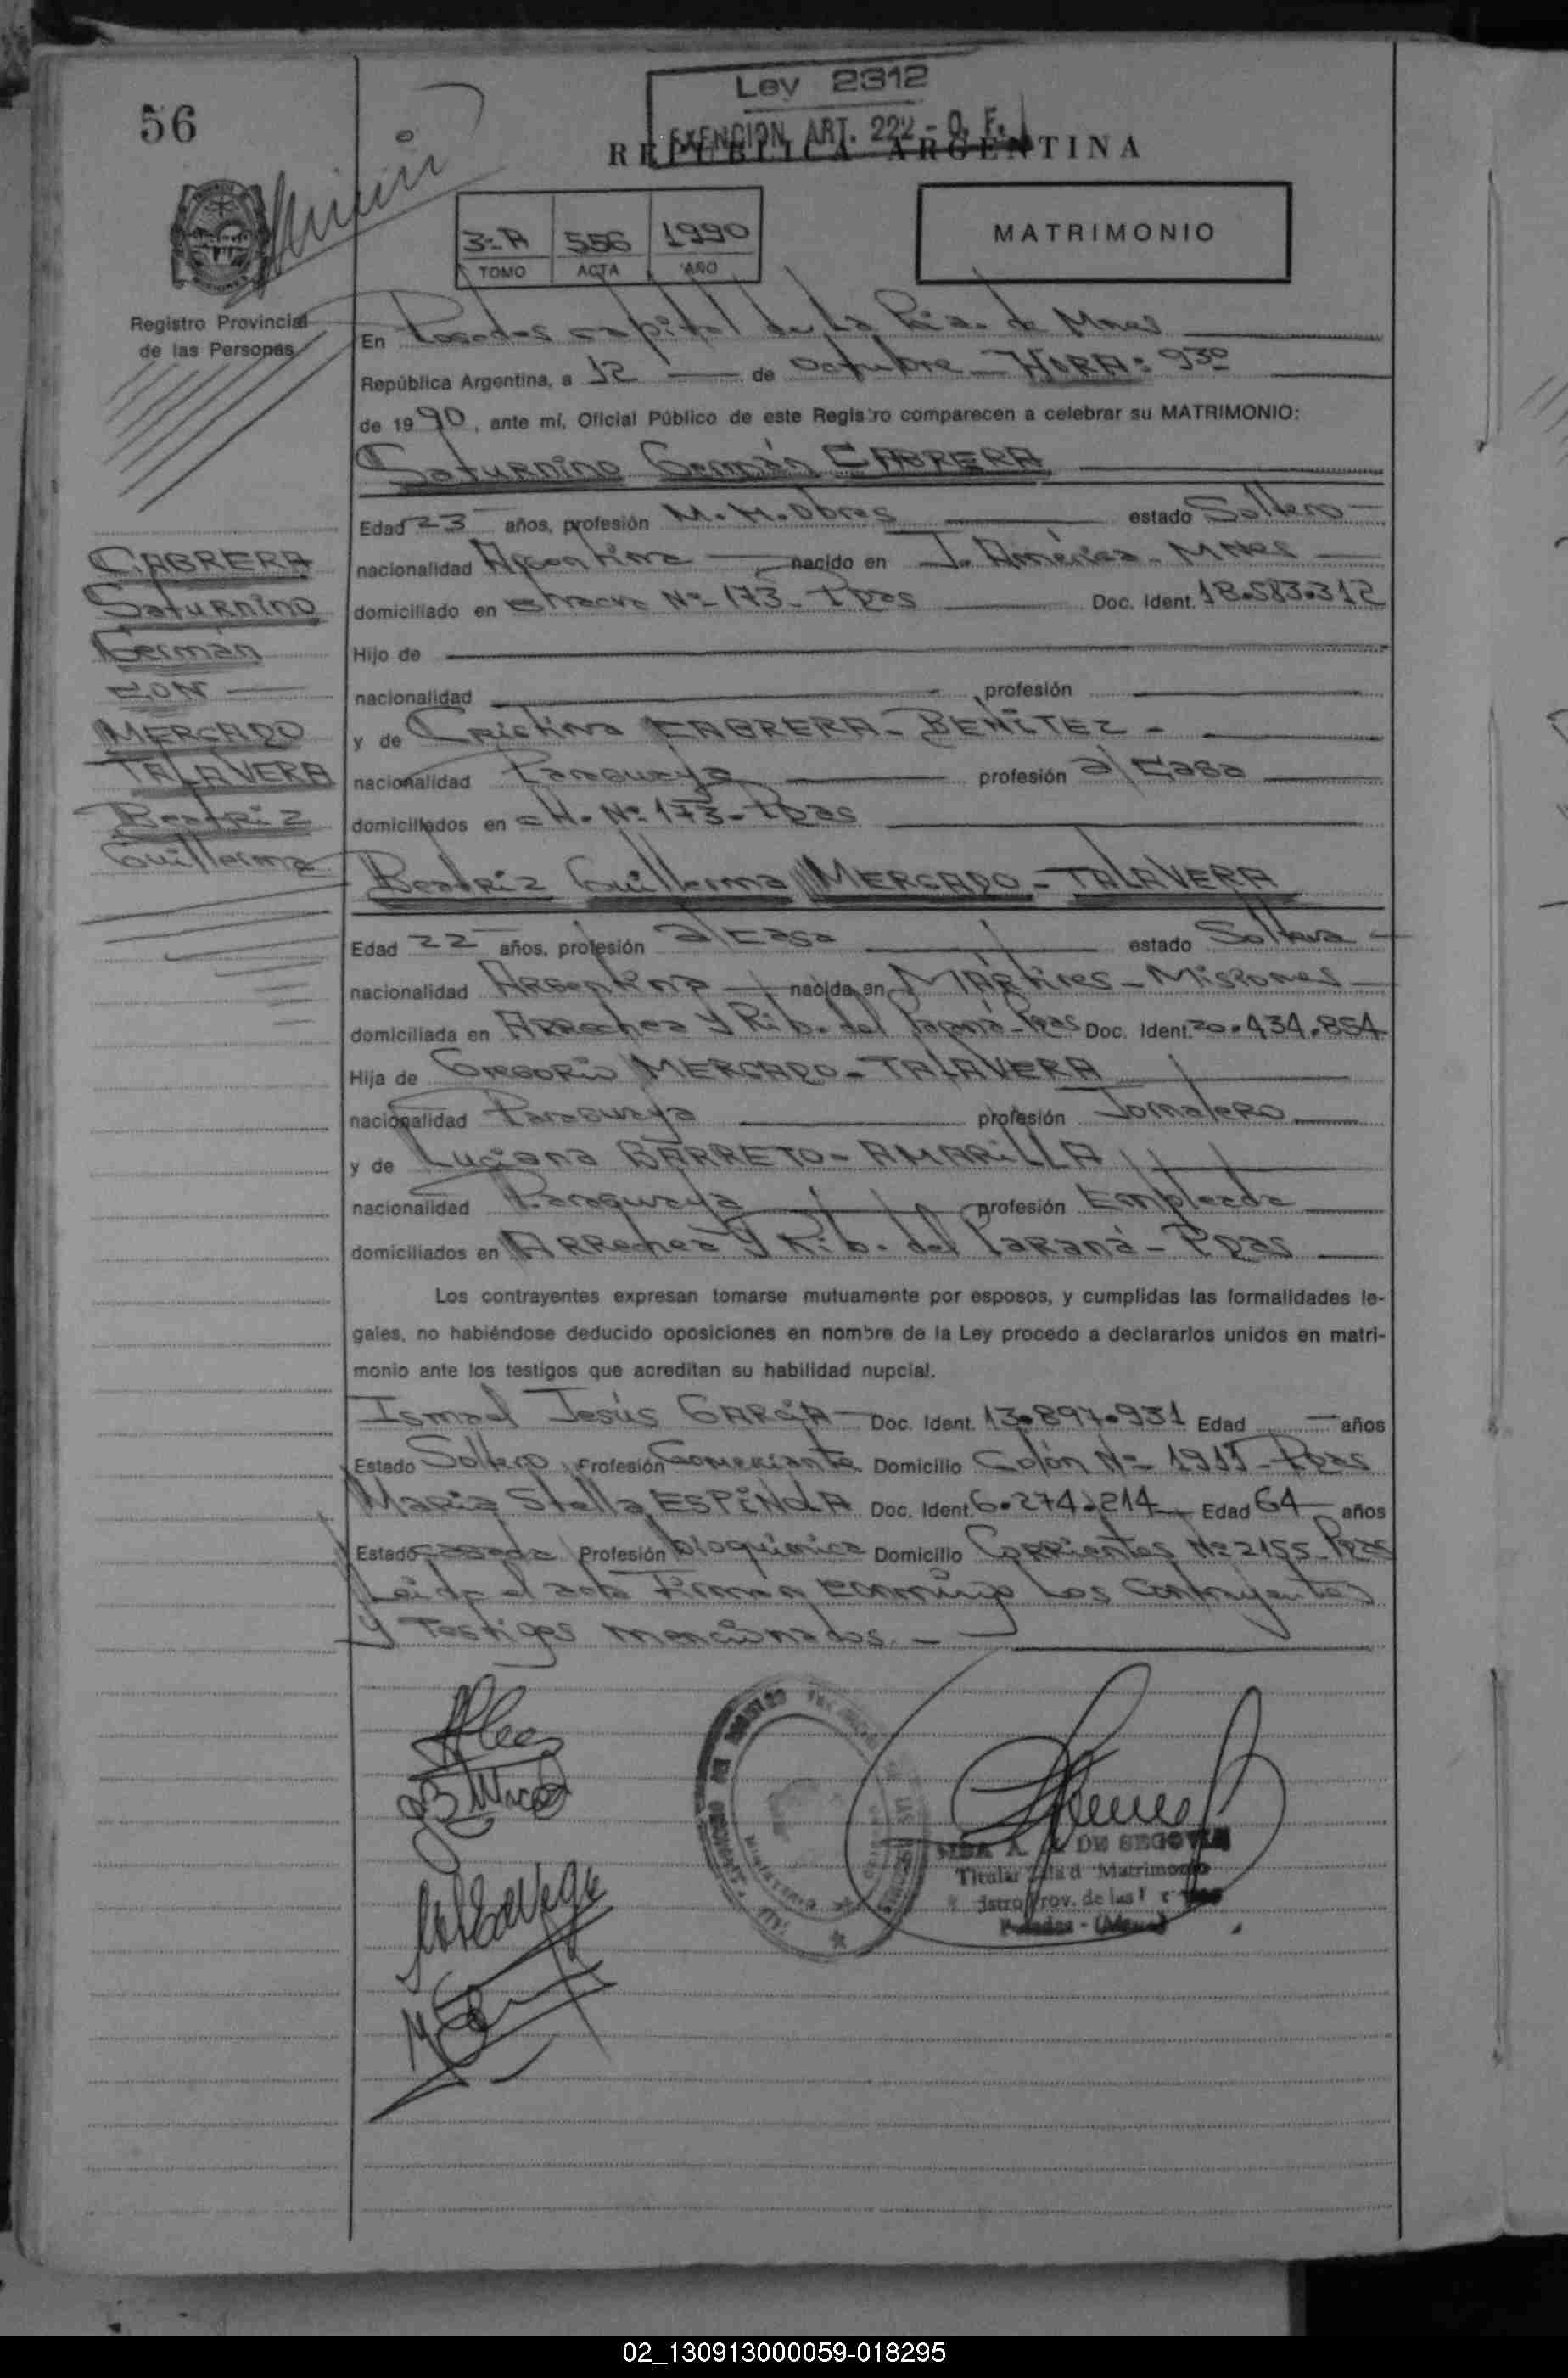 Ley 2312
EXENCION ART. 222 - O. F.
56
REPUBLICA ARGENTINA
3-A 556 1990
TOMO ACTA AÑO
MATRIMONIO
Registro Provincial
de las Personas
En Posadas capital de La Pcia. de Mnes
República Argentina, a 12 de octubre - HORA: 930
de 1990, ante mí, Oficial Público de este Registro comparecen a celebrar su MATRIMONIO:
Saturnino Germán CABRERA
Edad 23 años, profesión M. M. Obras estado Soltero
nacionalidad Argentina nacido en J. América - Mnes
domiciliado en Nº 173 - Pdas Doc. Ident. 18.583.312
Hijo de
nacionalidad profesión
y de Cristina CABRERA - BENÍTEZ -
nacionalidad Paraguaya profesión a/ casa
domiciliados en CH. Nº 173 - Pdas
CABRERA
Saturnino
Germán
CON
MERCADO
TALAVERA
Beatriz
Guillerma
Beatriz Guillerma MERCADO - TALAVERA
Edad 22 años, profesión a/ casa estado Soltera
nacionalidad Argentina nacida en Mártires - Misiones
domiciliada en Arrechea y Rib. del Paraná - Pdas Doc. Ident. 20.434.854
Hija de Gregorio MERCADO - TALAVERA
nacionalidad Paraguaya profesión Jornalero
y de Luciana BARRETO - AMARILLA
nacionalidad Paraguaya profesión Empleada
domiciliados en Arrechea y Rib. del Paraná - Pdas
Los contrayentes expresan tomarse mutuamente por esposos, y cumplidas las formalidades le-
gales, no habiéndose deducido oposiciones en nombre de la Ley procedo a declararlos unidos en matri-
monio ante los testigos que acreditan su habilidad nupcial.
Ismael Jesús GARCÍA Doc. Ident. 13.897.931 Edad años
Estado Soltero Profesión Comerciante Domicilio Colón Nº 1915 - Pdas
María Stella ESPÍNOLA Doc. Ident. 6.274.214 Edad 64 años
Estado casada Profesión bioquímica Domicilio Corrientes Nº 2155 - Pdas
Leída el acta Firman conmigo Los contrayentes
y Testigos mencionados. -
DE SEGOVIA
Titular Matrimonio
Prov. de las
Posadas - (Mnes)
02_130913000059-018295